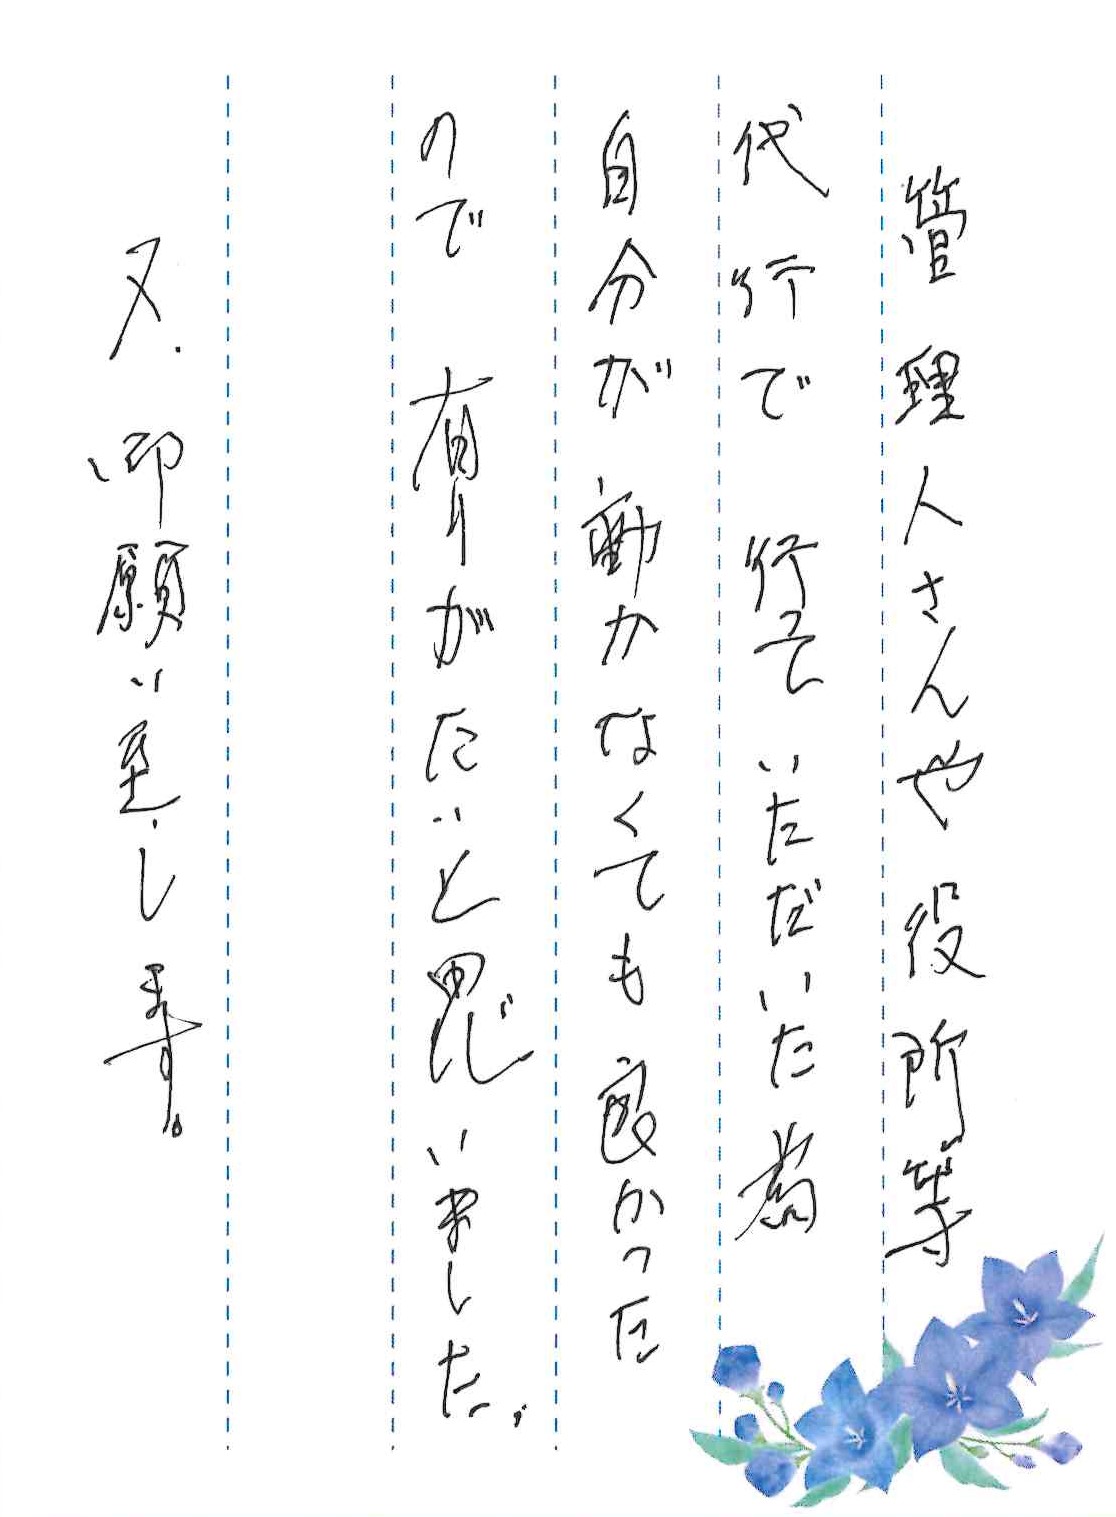 管理人さんや役所等
代行で行っていただいた為
自分が動かなくても良かった
ので有りがたいと思いました。
又、御願い致します。